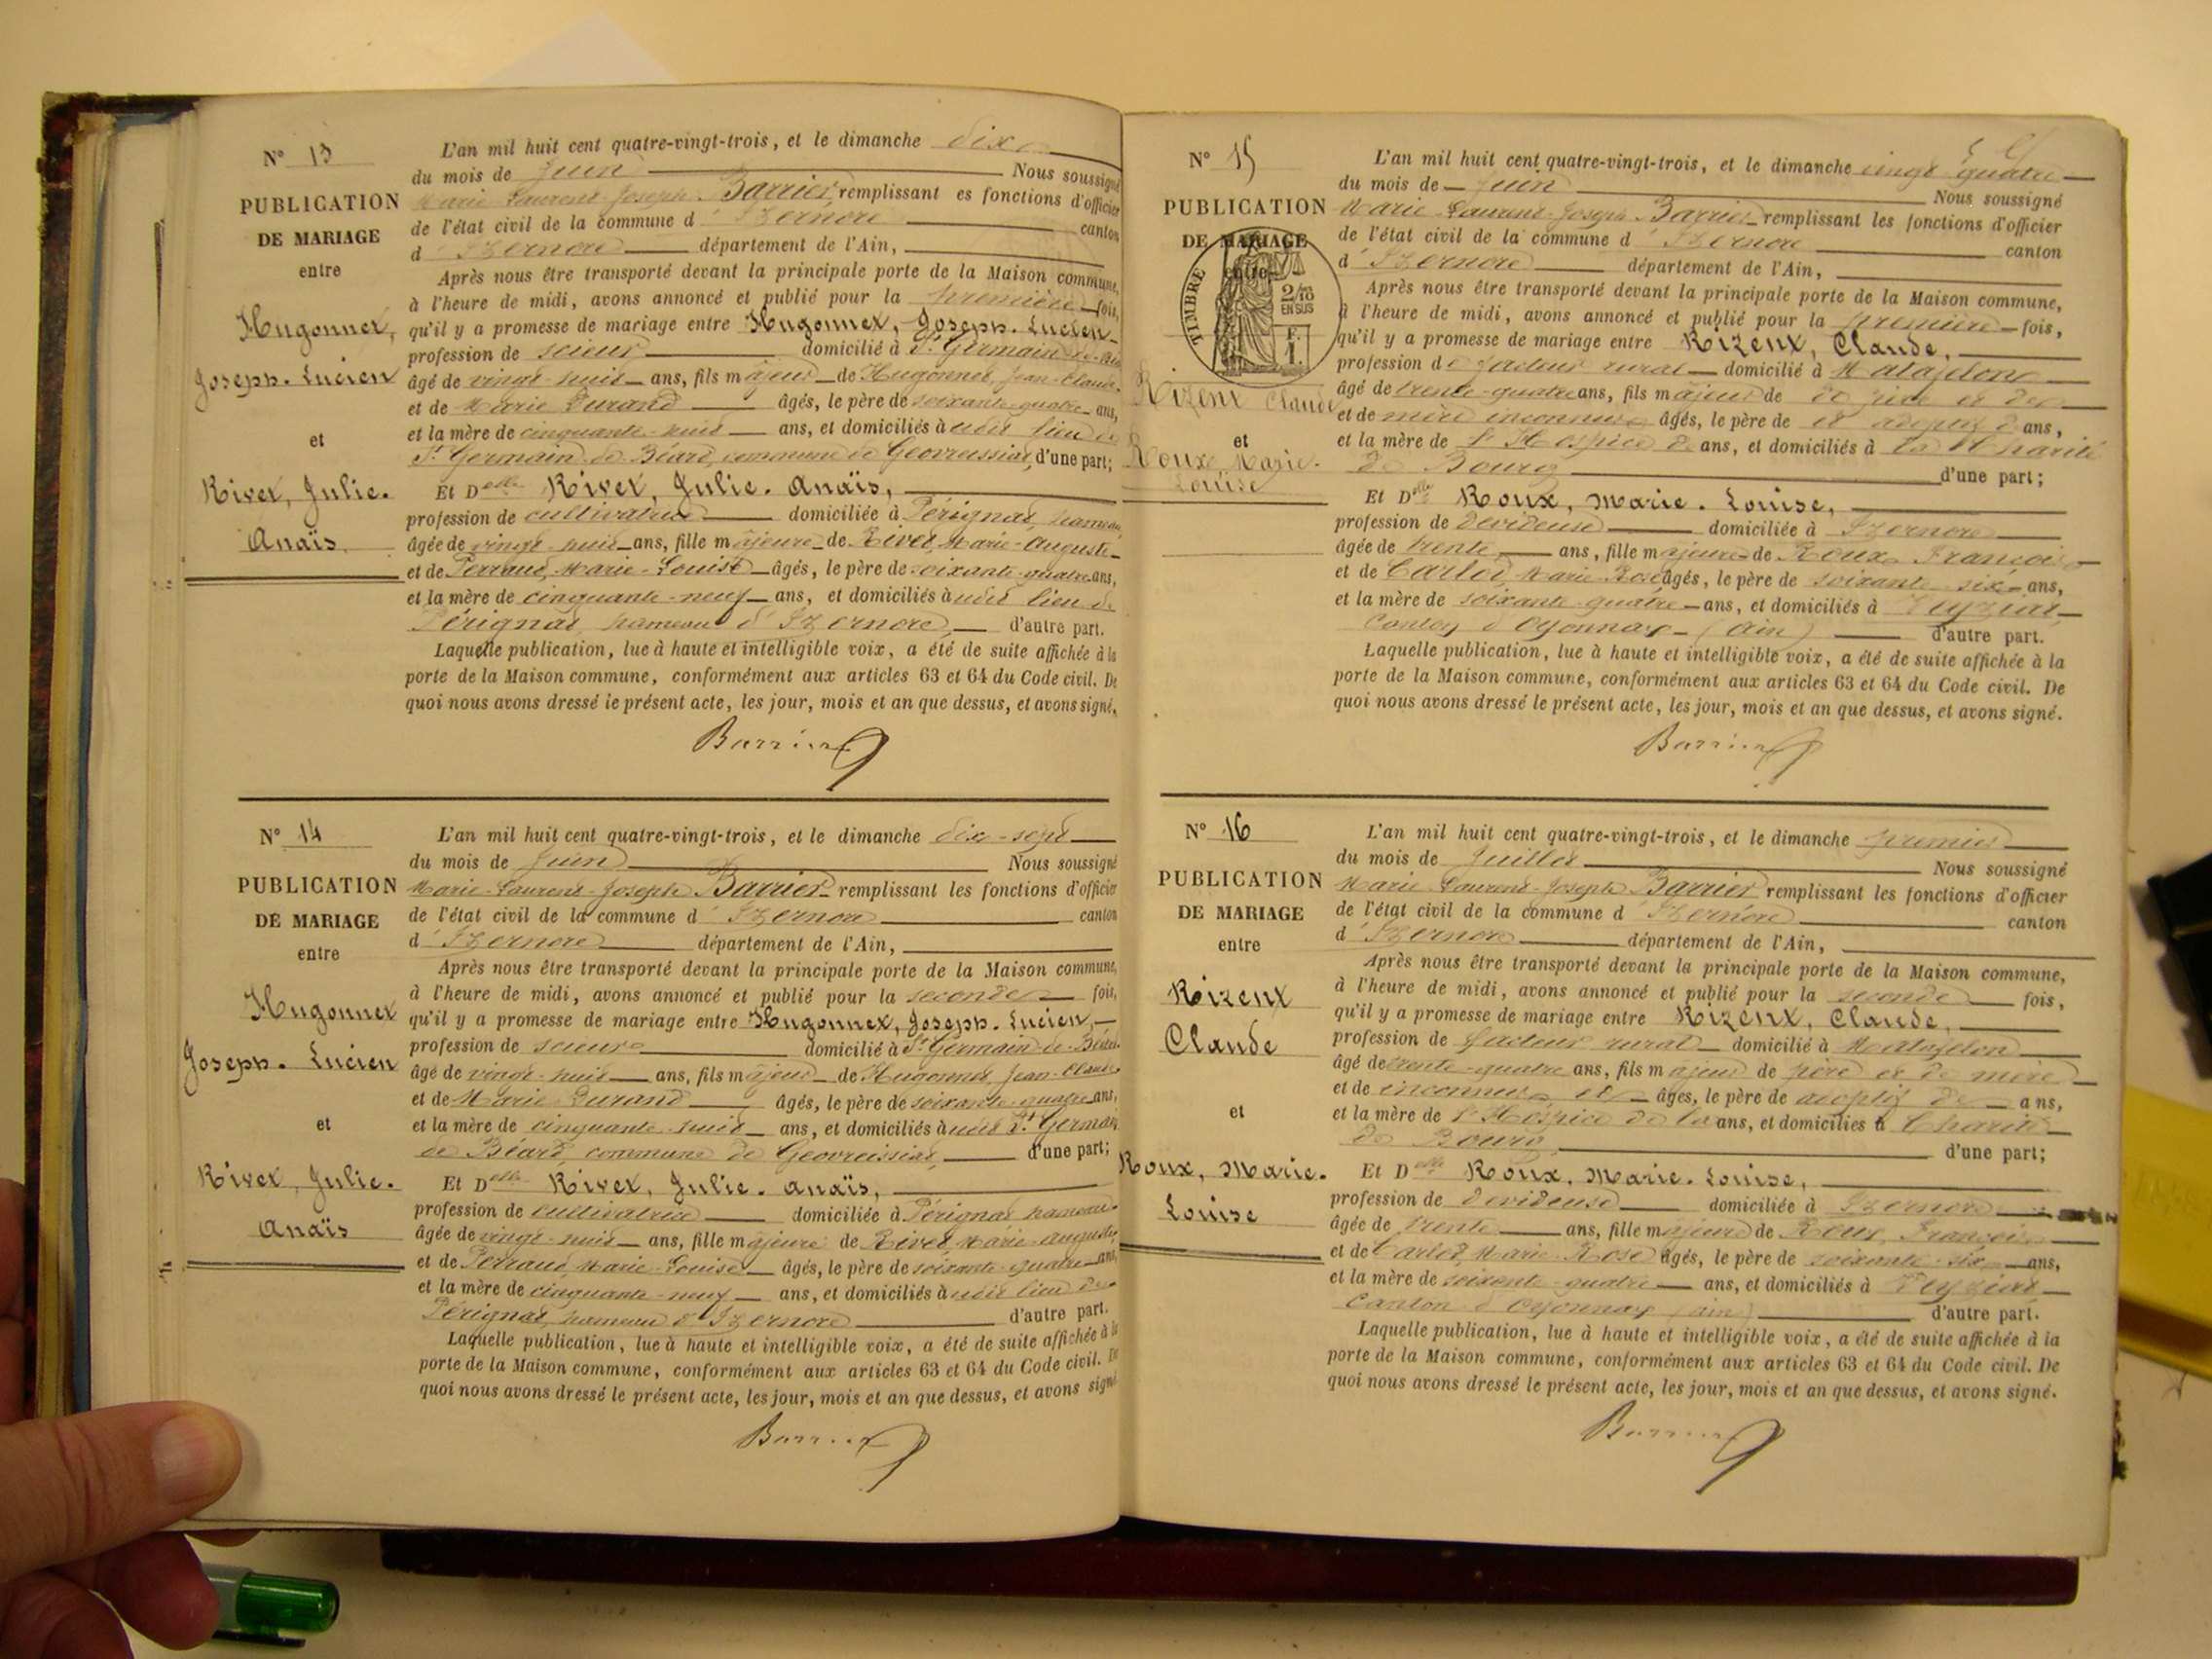 N° 13
PUBLICATION
DE MARIAGE
entre
Hugonnet,
Joseph. Lucien
et
Rivet, Julie.
Anaïs.
L'an mil huit cent quatre-vingt-trois, et le dimanche dix
du mois de Juin Nous soussigné
Marie-Laurent-Joseph Barrier remplissant les fonctions d'officier
de l'état civil de la commune d'Izernore canton
d'Izernore département de l'Ain,
Après nous être transporté devant la principale porte de la Maison commune,
à l'heure de midi, avons annoncé et publié pour la première fois,
qu'il y a promesse de mariage entre Hugonnet, Joseph. Lucien
profession de scieur domicilié à St Germain de
âgé de vingt-huit ans, fils majeur de Hugonnet, Jean-Claude
et de Marie Durand âgés, le père de soixante-quatre ans,
et la mère de cinquante-huit ans, et domiciliés à udit lieu de
St Germain de Béard, commune de Geovreissiat, d'une part;
Et Delle Rivet, Julie. Anaïs,
profession de cultivatrice domiciliée à Pérignat, hameau
âgée de vingt-huit ans, fille majeure de Rivet, Marie-Auguste
et de Perraud, Marie-Louise âgés, le père de soixante-quatre ans,
et la mère de cinquante-neuf ans, et domiciliés à udit lieu de
Pérignat, hameau d'Izernore, d'autre part.
Laquelle publication, lue à haute et intelligible voix, a été de suite affichée à la
porte de la Maison commune, conformément aux articles 63 et 64 du Code civil. De
quoi nous avons dressé le présent acte, les jour, mois et an que dessus, et avons signé.
Barrier
N° 14
PUBLICATION
DE MARIAGE
entre
Hugonnet
Joseph. Lucien
et
Rivet, Julie.
Anaïs
L'an mil huit cent quatre-vingt-trois, et le dimanche dix-sept
du mois de Juin Nous soussigné
Marie-Laurent-Joseph Barrier remplissant les fonctions d'officier
de l'état civil de la commune d'Izernore canton
d'Izernore département de l'Ain,
Après nous être transporté devant la principale porte de la Maison commune,
à l'heure de midi, avons annoncé et publié pour la seconde fois,
qu'il y a promesse de mariage entre Hugonnet, Joseph. Lucien,
profession de scieur domicilié à St Germain de Béard
âgé de vingt-huit ans, fils majeur de Hugonnet, Jean-Claude
et de Marie Durand âgés, le père de soixante-quatre ans,
et la mère de cinquante-huit ans, et domiciliés à udit St Germain
de Béard, commune de Geovreissiat, d'une part;
Et Delle Rivet, Julie. Anaïs,
profession de cultivatrice domiciliée à Pérignat hameau
âgée de vingt-huit ans, fille majeure de Rivet, Marie-Auguste
et de Perraud, Marie-Louise âgés, le père de soixante-quatre ans,
et la mère de cinquante-neuf ans, et domiciliés à udit lieu de
Pérignat, hameau d'Izernore d'autre part.
Laquelle publication, lue à haute et intelligible voix, a été de suite affichée à la
porte de la Maison commune, conformément aux articles 63 et 64 du Code civil. De
quoi nous avons dressé le présent acte, les jour, mois et an que dessus, et avons signé
Barrier
N° 15
PUBLICATION
DE MARIAGE
entre
TIMBRE
2/10
EN SUS
F.
1.
Rizent Claude
et
Roux, Marie.
Louise
L'an mil huit cent quatre-vingt-trois, et le dimanche vingt quatre
du mois de Juin Nous soussigné
Marie-Laurent-Joseph Barrier remplissant les fonctions d'officier
de l'état civil de la commune d'Izernore canton
d'Izernore département de l'Ain,
Après nous être transporté devant la principale porte de la Maison commune,
à l'heure de midi, avons annoncé et publié pour la première fois,
qu'il y a promesse de mariage entre Rizent, Claude,
profession de facteur rural domicilié à Matafelon
âgé de trente-quatre ans, fils majeur de de père et de
et de mère inconnus âgés, le père de et adoptif d ans,
et la mère de l'Hospice de ans, et domiciliés à la Charité
de Bourg d'une part;
Et Delle Roux, Marie. Louise,
profession de devideuse domiciliée à Izernore
âgée de trente ans, fille majeure de Roux François
et de Carlod, Marie Rose âgés, le père de soixante six ans,
et la mère de soixante-quatre ans, et domiciliés à Veyziat
Canton d'Oyonnax (Ain) d'autre part.
Laquelle publication, lue à haute et intelligible voix, a été de suite affichée à la
porte de la Maison commune, conformément aux articles 63 et 64 du Code civil. De
quoi nous avons dressé le présent acte, les jour, mois et an que dessus, et avons signé.
Barrier
N° 16
PUBLICATION
DE MARIAGE
entre
Rizent
Claude
et
Roux, Marie.
Louise
L'an mil huit cent quatre-vingt-trois, et le dimanche premier
du mois de Juillet Nous soussigné
Marie-Laurent-Joseph Barrier remplissant les fonctions d'officier
de l'état civil de la commune d'Izernore canton
d'Izernore département de l'Ain,
Après nous être transporté devant la principale porte de la Maison commune,
à l'heure de midi, avons annoncé et publié pour la seconde fois,
qu'il y a promesse de mariage entre Rizent, Claude,
profession de facteur rural domicilié à Matafelon
âgé de trente-quatre ans, fils majeur de père et de mère
et de inconnus et âgés, le père de adoptif de ans,
et la mère de l'Hospice de la ans, et domiciliés à Charité
de Bourg d'une part;
Et Delle Roux, Marie. Louise,
profession de devideuse domiciliée à Izernore
âgée de trente ans, fille majeure de Roux François
et de Carlod, Marie-Rose âgés, le père de soixante-six ans,
et la mère de soixante-quatre ans, et domiciliés à Veyziat
Canton d'Oyonnax (Ain) d'autre part.
Laquelle publication, lue à haute et intelligible voix, a été de suite affichée à la
porte de la Maison commune, conformément aux articles 63 et 64 du Code civil. De
quoi nous avons dressé le présent acte, les jour, mois et an que dessus, et avons signé.
Barrier